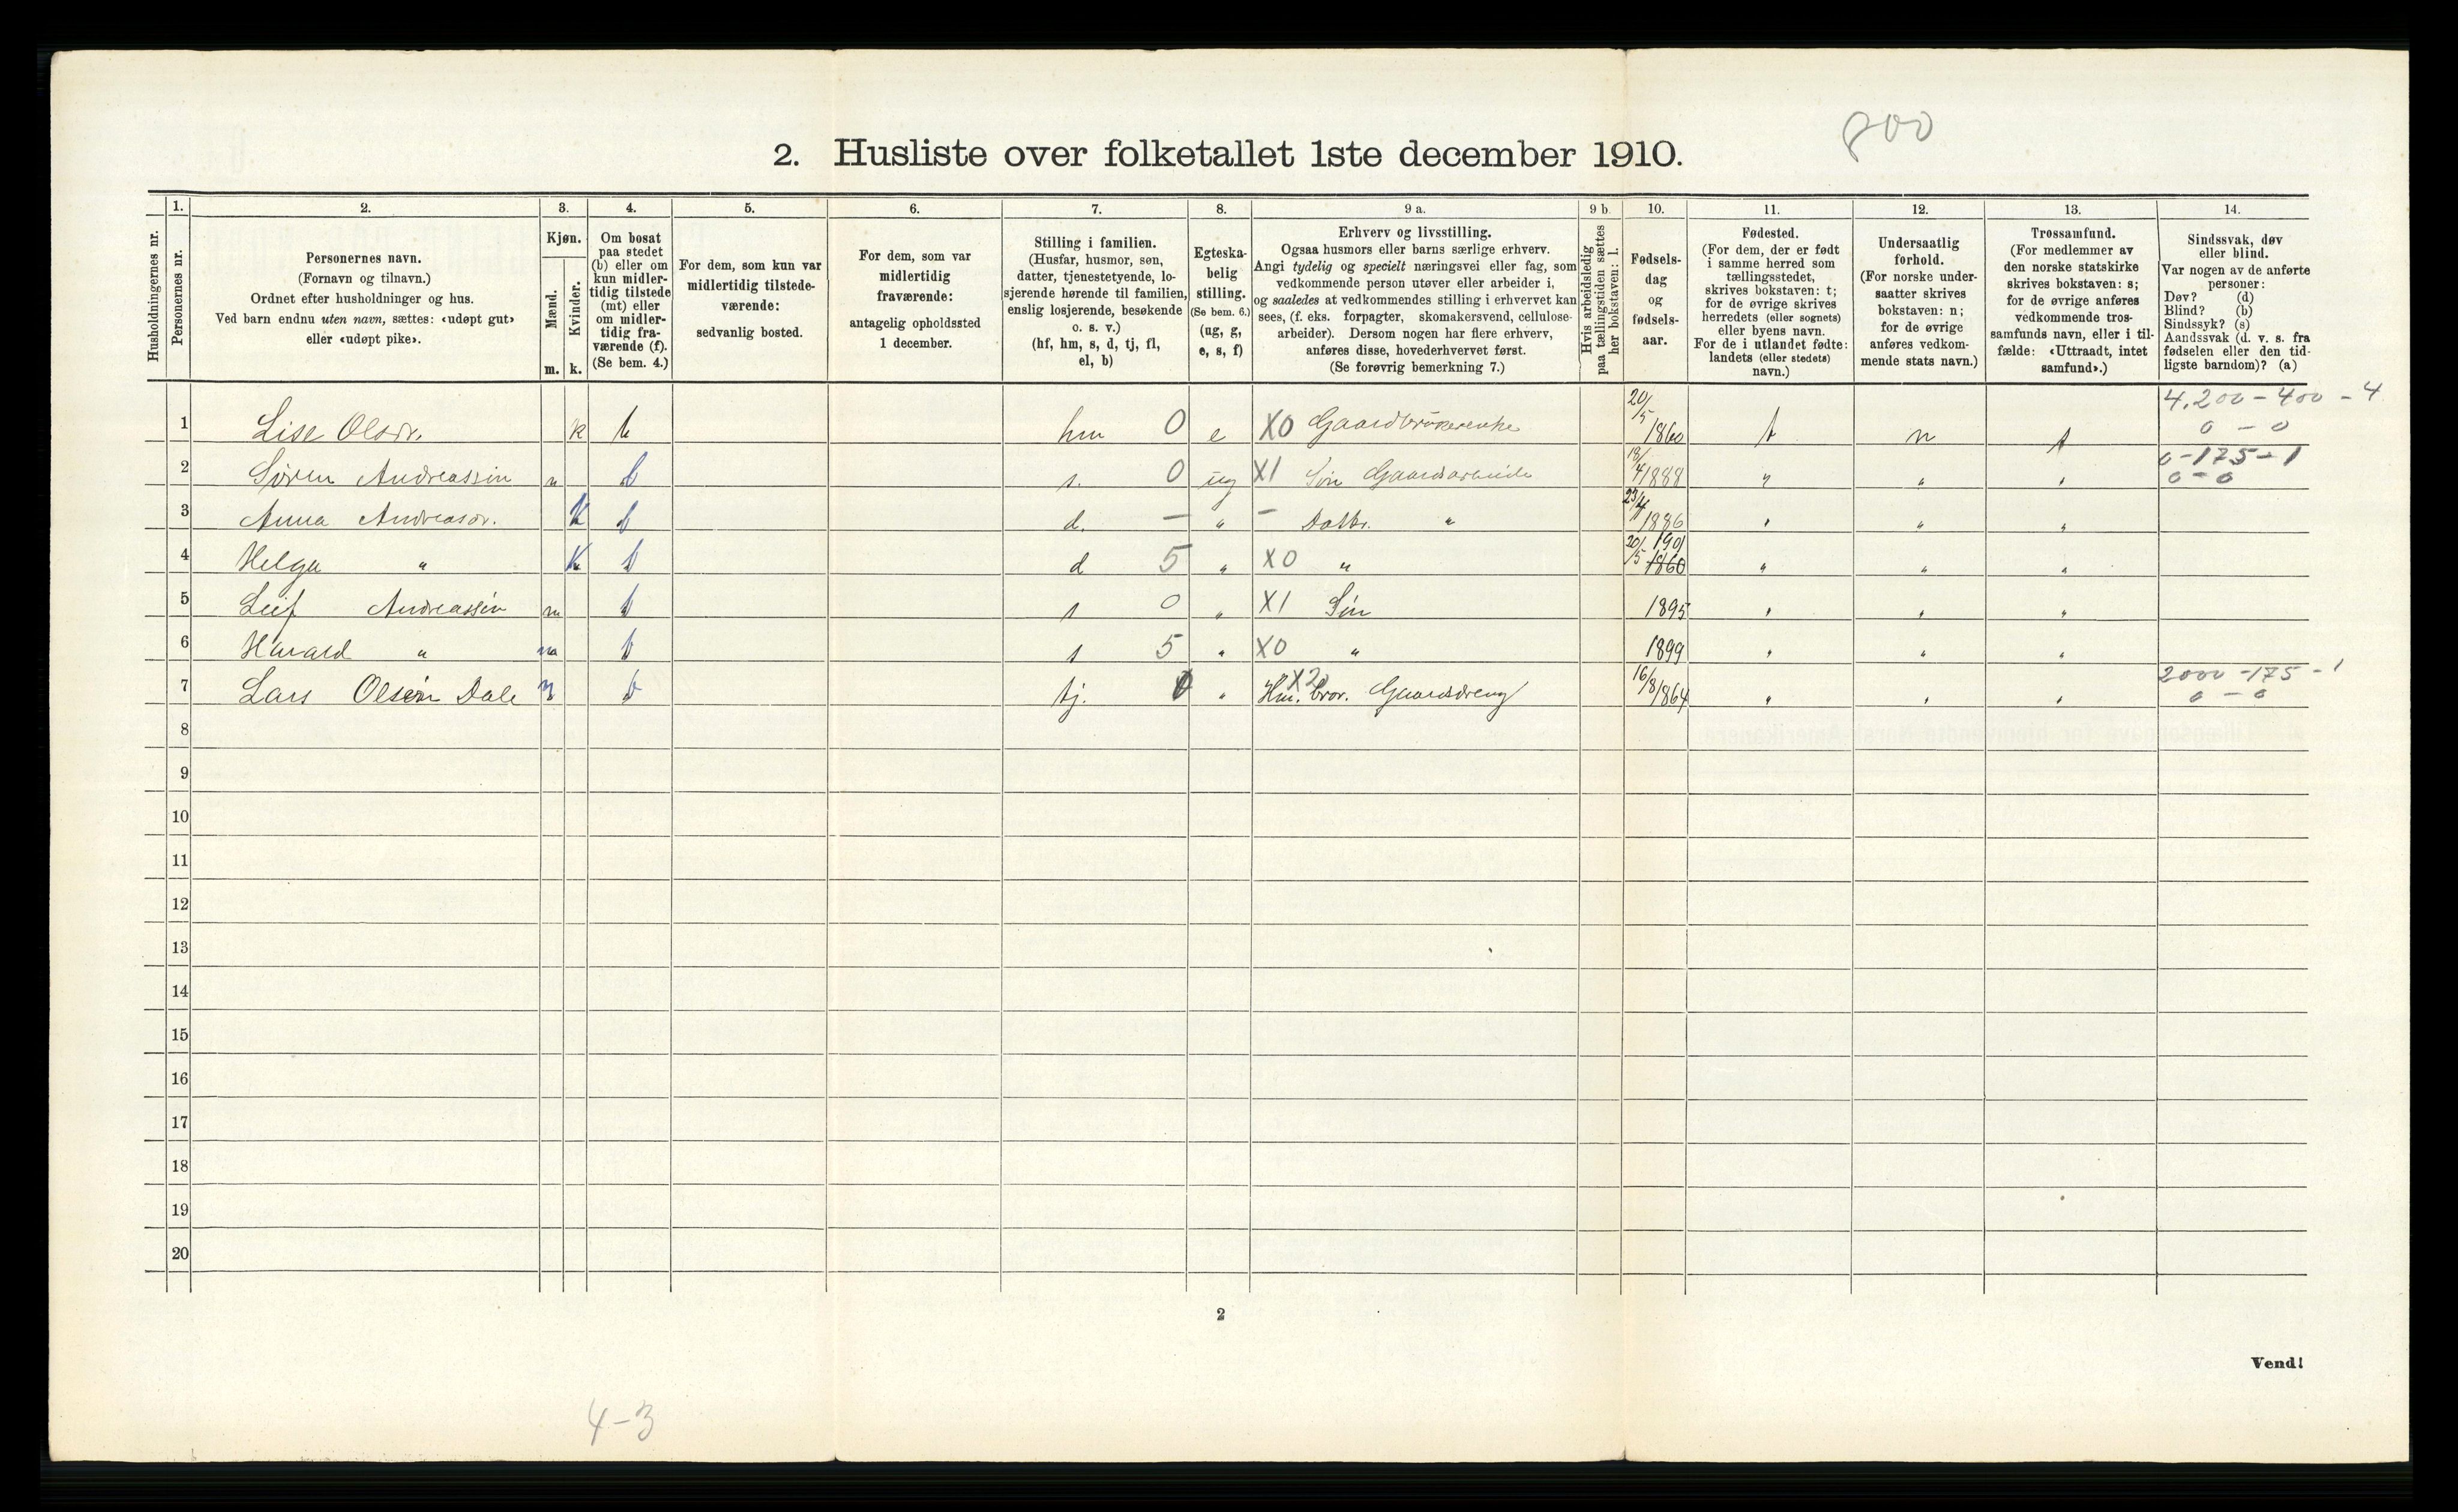 800
2. Husliste over folketallet 1ste december 1910.
Husholdningernes nr.
1.
Personernes nr.
2.
Personernes navn.
(Fornavn og tilnavn.)
Ordnet efter husholdninger og hus.
Ved barn endnu uten navn, sættes: «udøpt gut»
eller «udøpt pike».
3.
Kjøn.
Mænd.
Kvinder.
m. k.
4.
Om bosat
paa stedet
(b) eller om
kun midler-
tidig tilstede
(mt) eller
om midler-
tidig fra-
værende (f).
(Se bem. 4.)
5.
For dem, som kun var
midlertidig tilstede-
værende:
sedvanlig bosted.
6.
For dem, som var
midlertidig
fraværende:
antagelig opholdssted
1 december.
7.
Stilling i familien.
(Husfar, husmor, søn,
datter, tjenestetyende, lo-
sjerende hørende til familien,
enslig losjerende, besøkende
o. s. v.)
(hf, hm, s, d, tj, fl,
el, b)
8.
Egteska-
belig
stilling.
(Se bem. 6.)
(ug, g,
e, s, f)
9 a.
Erhverv og livsstilling.
Ogsaa husmors eller barns særlige erhverv.
Angi tydelig og specielt næringsvei eller fag, som
vedkommende person utøver eller arbeider i,
og saaledes at vedkommendes stilling i erhvervet kan
sees, (f. eks. forpagter, skomakersvend, cellulose-
arbeider). Dersom nogen har flere erhverv,
anføres disse, hovederhvervet først.
(Se forøvrig bemerkning 7.)
9 b.
Hvis arbeidsledig
paa tællingstiden sættes
her bokstaven: l.
10.
Fødsels-
dag
og
fødsels-
aar.
11.
Fødested.
(For dem, der er født
i samme herred som
tællingsstedet,
skrives bokstaven: t;
for de øvrige skrives
herredets (eller sognets)
eller byens navn.
For de i utlandet fødte:
landets (eller stedets)
navn.)
12.
Undersaatlig
forhold.
(For norske under-
saatter skrives
bokstaven: n;
for de øvrige
anføres vedkom-
mende stats navn.)
13.
Trossamfund.
(For medlemmer av
den norske statskirke
skrives bokstaven: s;
for de øvrige anføres
vedkommende tros-
samfunds navn, eller i til-
fælde: «Uttraadt, intet
samfund».)
14.
Sindssvak, døv
eller blind.
Var nogen av de anførte
personer:
Døv? (d)
Blind? (b)
Sindssyk? (s)
Aandssvak (d. v. s. fra
fødselen eller den tid-
ligste barndom)? (a)
1 Lise Olsdr. k b hm 0 e X0 Gaardbrukerenke 20/5 1860 t n s 4.200 - 400 - 4
0 - 0
2 Søren Andreassen m b s. 0 ug X1 Søn Gaardsarbeide 18/4 1888 " " " 0 - 175 - 1
0 - 0
3 Anna Andreasdr. K b d. — " — Datter " 23/4 1886 " " "
4 Helga " K b d 5 " X0 " 20/5 1901 1860 " " "
5 Leif Andreassen m b s 0 " X1 Søn 1895 " " "
6 Harald " m b s 5 " X0 " 1899 " " "
7 Lars Olsen Dale m b tj. 0 " X2 Hm. bror. Gaardsdreng 16/8 1864 " " " 2000 - 175 - 1
0 - 0
8
9
10
11
12
13
14
15
16
17
18
19
20
2
Vend!
4-3